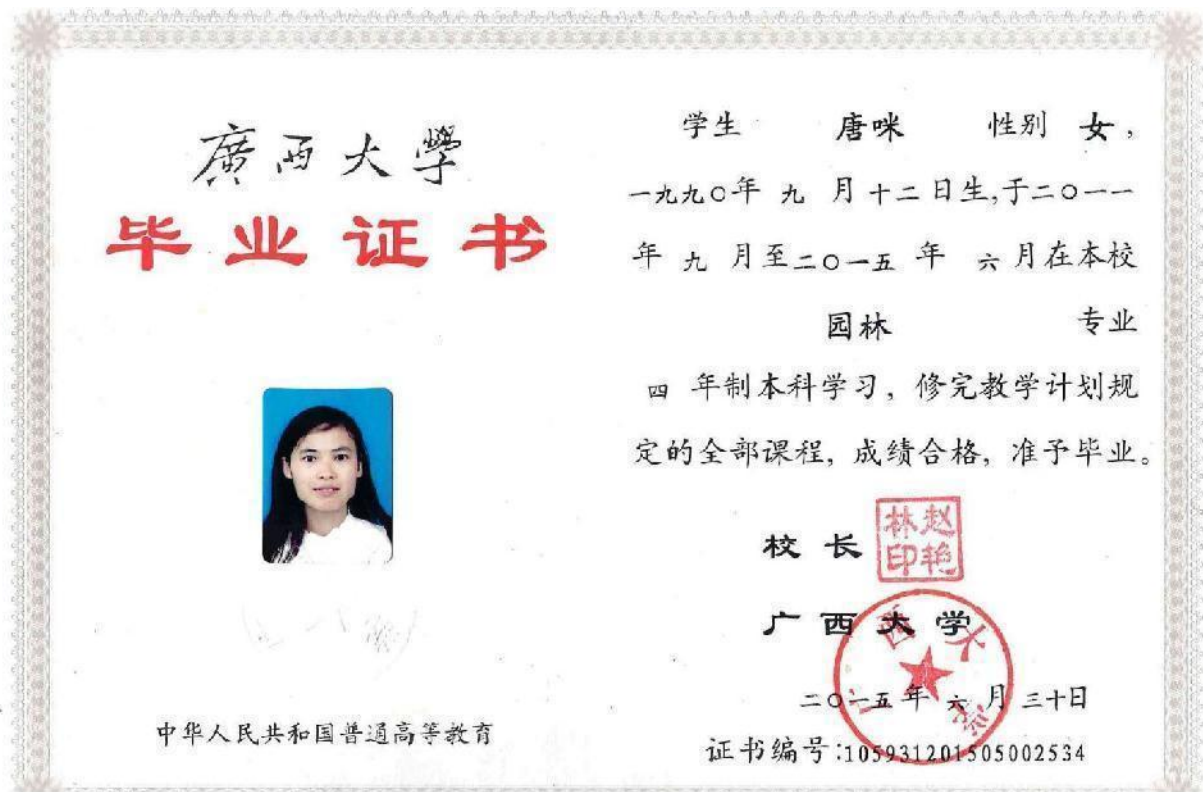 廣西大學
毕业证书
中华人民共和国普通高等教育
学生 唐咪 性别 女，
一九九〇年 九 月十二日生,于二〇一一
年 九 月至二〇一五 年 六月在本校
园林 专业
四 年制本科学习，修完教学计划规
定的全部课程，成绩合格，准予毕业。
校长
赵艳林印
广西大学
广西大学
二〇一五年 六 月 三十日
证书编号:105931201505002534